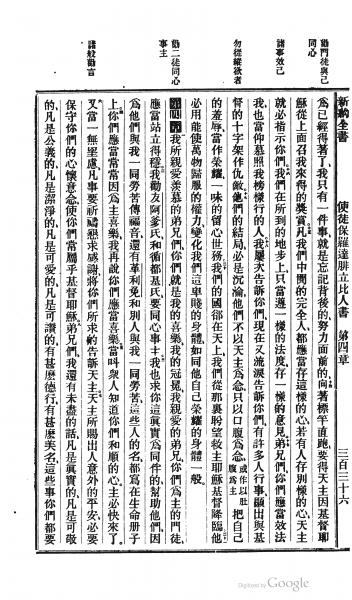 新約全書 使徒保羅達腓立比人書 第四章 三百三十六
勸門徒與己同心
諸事效己
勿從縱欲者
勸二徒同心事主
諸般勸言
爲已經得著了、我只有一件事、就是忘記背後的、努力面前的、向著標竿直跑、要得天主因基督耶
穌從上面召我來得的獎賞、凡我們中間的完全人、都應當存這樣的心、若有人存別樣的心、天主
就必指示你們、我們在所到的地步上、只當遵一樣的法度、存一樣的意見、弟兄們、你們應當效法
我、也當仰慕照我榜樣行的人、我屢次告訴你們、現在又流淚告訴你們、有許多人行事、顯出與基
督的十字架作仇敵、他們的結局、必是沉淪、他們不以天主爲念、只以口腹爲念、或作以肚腹爲主把自己
的羞辱、當作榮耀、一味的留心世務、我們的國卻在天上、我們從那裏盼望救主耶穌基督降臨、他
必用能使萬物歸服的權力、變化我們這卑賤的身體、如同他自己榮耀的身體一般、
第四章 我所親愛羨慕的弟兄們、你們就是我的喜樂、我的冠冕、我親愛的弟兄、你們爲主的門徒、
應當站立得穩、我勸友阿多氏和循都基氏、要同心事主、我也求你這眞實爲同伴的、幫助他們、因
爲他們與我一同勞苦傳福音、還有革利免、和別人、與我一同勞苦、這些人的名都寫在生命冊子
上、你們應當常常因爲主喜樂、我再說、你們應當喜樂、當叫衆人知道你們和順的心、主必快來了、
又當一無罣慮、凡事要祈禱懇求感謝、將你們所求的告訴天主、天主所賜出人意外的平安、必要
保守你們的心懷意念、使你們常屬乎基督耶穌、弟兄們、我還有未盡的話、凡是眞實的、凡是可敬
的、凡是公義的、凡是潔淨的、凡是可愛的、凡是可讚的、有甚麼德行、有甚麼美名、這些事你們都要
Digitized by Google